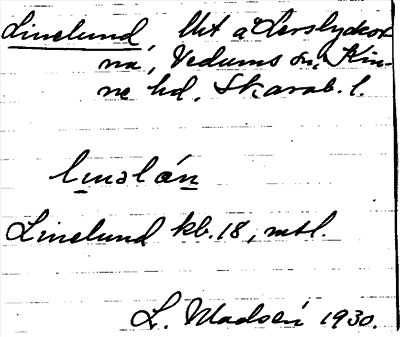 Linelund, Uht a Perslyckor-
na, Vedums sn, Kin-
ne hd, Skarab. l.
linəlán
Linelund kb. 18, mtl.
L. Madsén 1930.